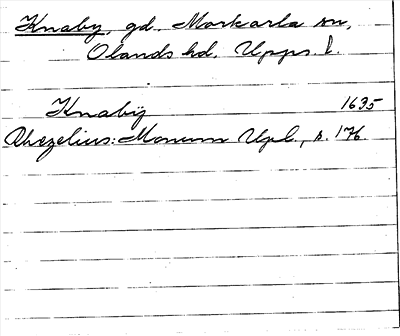 Knaby, gd. Morkarla sn,
Olands hd, Upps l.
Knabÿ 1635
Rhezelius: Monum Upl., s. 176